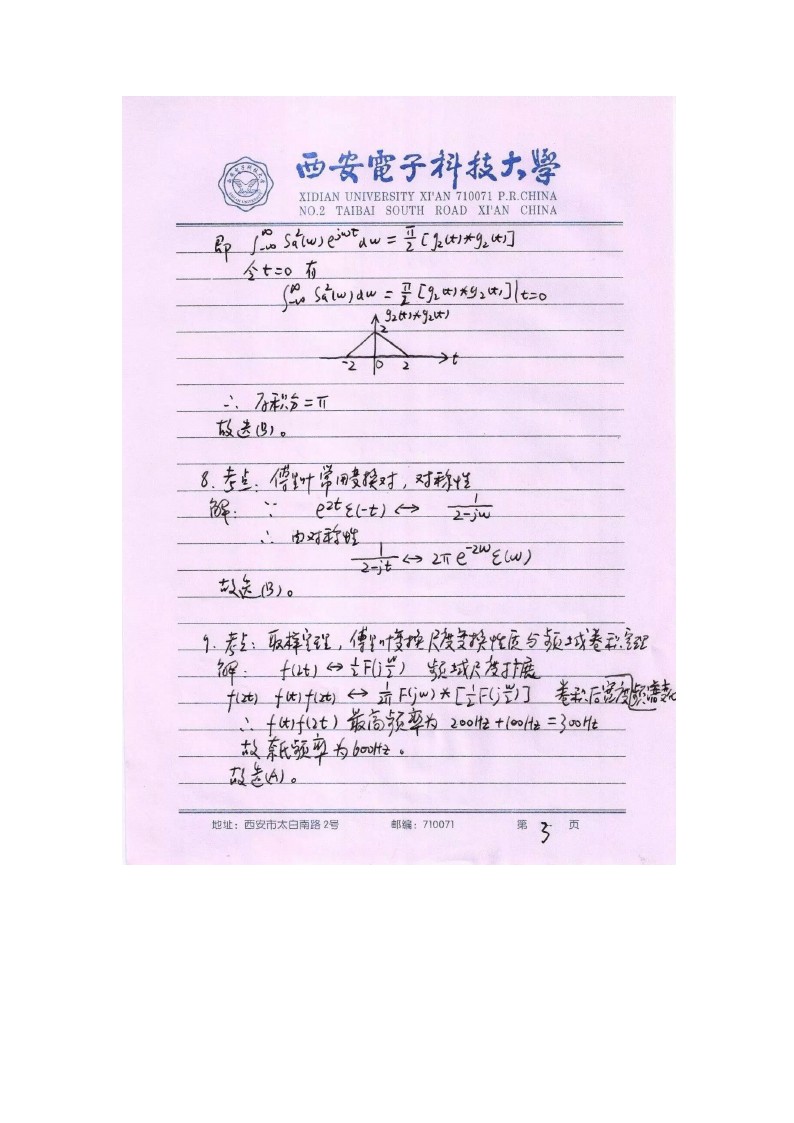 西安電子科技大學
XIDIAN UNIVERSITY XI'AN 710071 P.R.CHINA
NO.2 TAIBAI SOUTH ROAD XI'AN CHINA
即 ∫_{-∞}^{∞} Sa²(ω)e^{jωt}dω = π/2 [g₂(t)*g₂(t)]
令t=0 有
∫_{-∞}^{∞} Sa²(ω)dω = π/2 [g₂(t)*g₂(t)]|t=0
g₂(t)*g₂(t)
2
-2 0 2 t
∴ 原积分=π
故选(B)。
8. 考点: 傅里叶常用变换对, 对称性
解: ∵ e^{2t}ε(-t) ↔ 1/(2-jω)
∴ 由对称性
1/(2-jt) ↔ 2π e^{-2ω}ε(ω)
故选(B)。
9. 考点: 取样定理, 傅里叶变换尺度变换性质与频域卷积定理
解: f(2t) ↔ ½F(j ω/2) 频域尺度扩展
f(2t) f(t)f(2t) ↔ 1/2π F(jω)*[½F(j ω/2)] 卷积后宽度
∴ f(t)f(2t)最高频率为 200Hz+100Hz=300Hz
故奈氏频率为600Hz。
故选(A)。
地址：西安市太白南路2号 邮编：710071 第 3 页